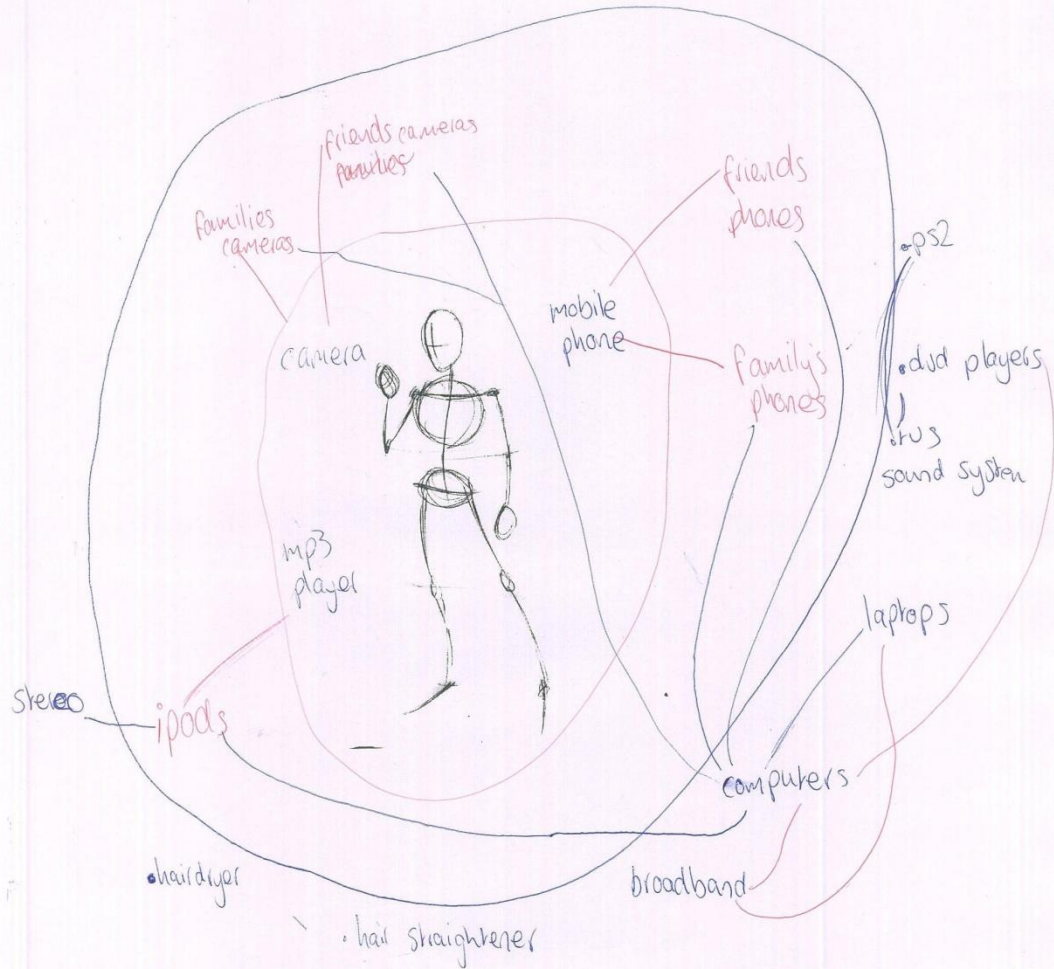 friends cameras
families
families
cameras
friends
phones
.ps2
mobile
phone
camera
family's
phones
.dvd players
.tvs
sound system
mp3
player
laptops
stereo
ipods
computers
.hairdryer
broadband
. hair straightener